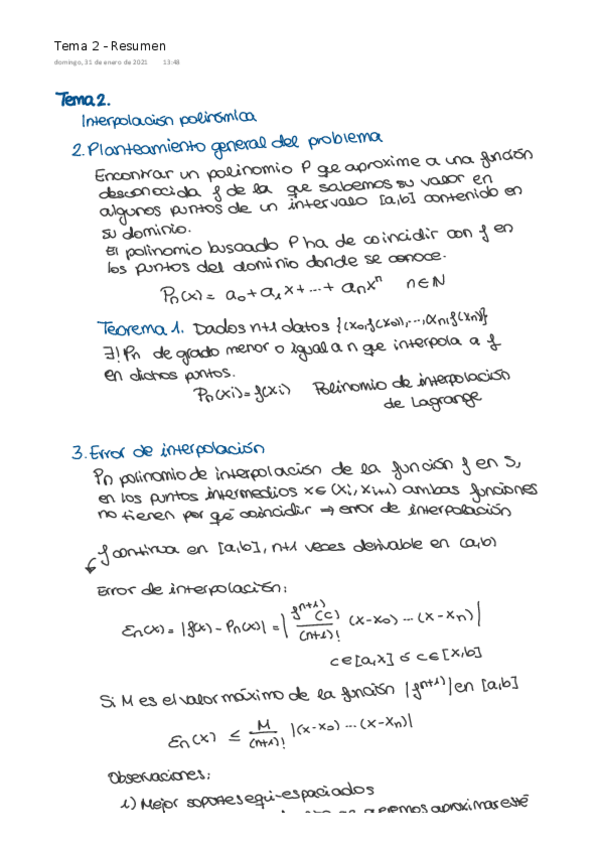 Tema 2 - Resumen
domingo, 31 de enero de 2021 13:48
Tema 2.
Interpolación polinómica
2. Planteamiento general del problema
Encontrar un polinomio P qe aproxime a una función
desconocida f de la que sabemos su valor en
algunos puntos de un intervalo [a,b] contenido en
su dominio.
El polinomio buscado P ha de coincidir con f en
los puntos del dominio donde se conoce.
Pn(x) = a₀ + a₁x + ... + aₙxⁿ n ∈ N
Teorema 1. Dados n+1 datos {(x₀,f(x₀)),...,(xₙ,f(xₙ))}
∃! Pn de grado menor o igual a n qe interpola a f
en dichos puntos.
Pn(xi) = f(xi) Polinomio de interpolación
de Lagrange
3. Error de interpolación
Pn polinomio de interpolación de la función f en S,
en los puntos intermedios x ∈ (xi, xi+1) ambas funciones
no tienen por qé coincidir → error de interpolación
f continua en [a,b], n+1 veces derivable en (a,b)
Error de interpolación:
εn(x) = |f(x) - Pn(x)| = | f^(n+1)(c) / (n+1)! (x-x₀) ... (x-xₙ) |
c ∈ [a,x] ó c ∈ [x,b]
Si M es el valor máximo de la función |f^(n+1)| en [a,b]
εn(x) ≤ M / (n+1)! |(x-x₀) ... (x-xₙ)|
Observaciones:
1) Mejor soportes equi-espaciados
queremos aproximar esté